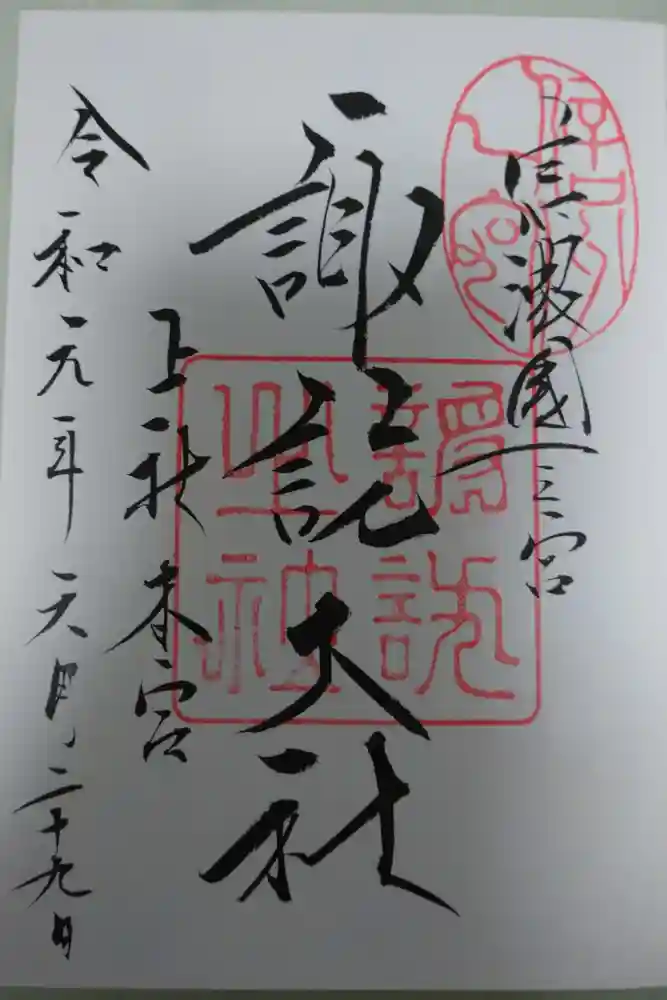 信濃國一之宮
諏訪大社
上社本宮
令和元年六月二十九日